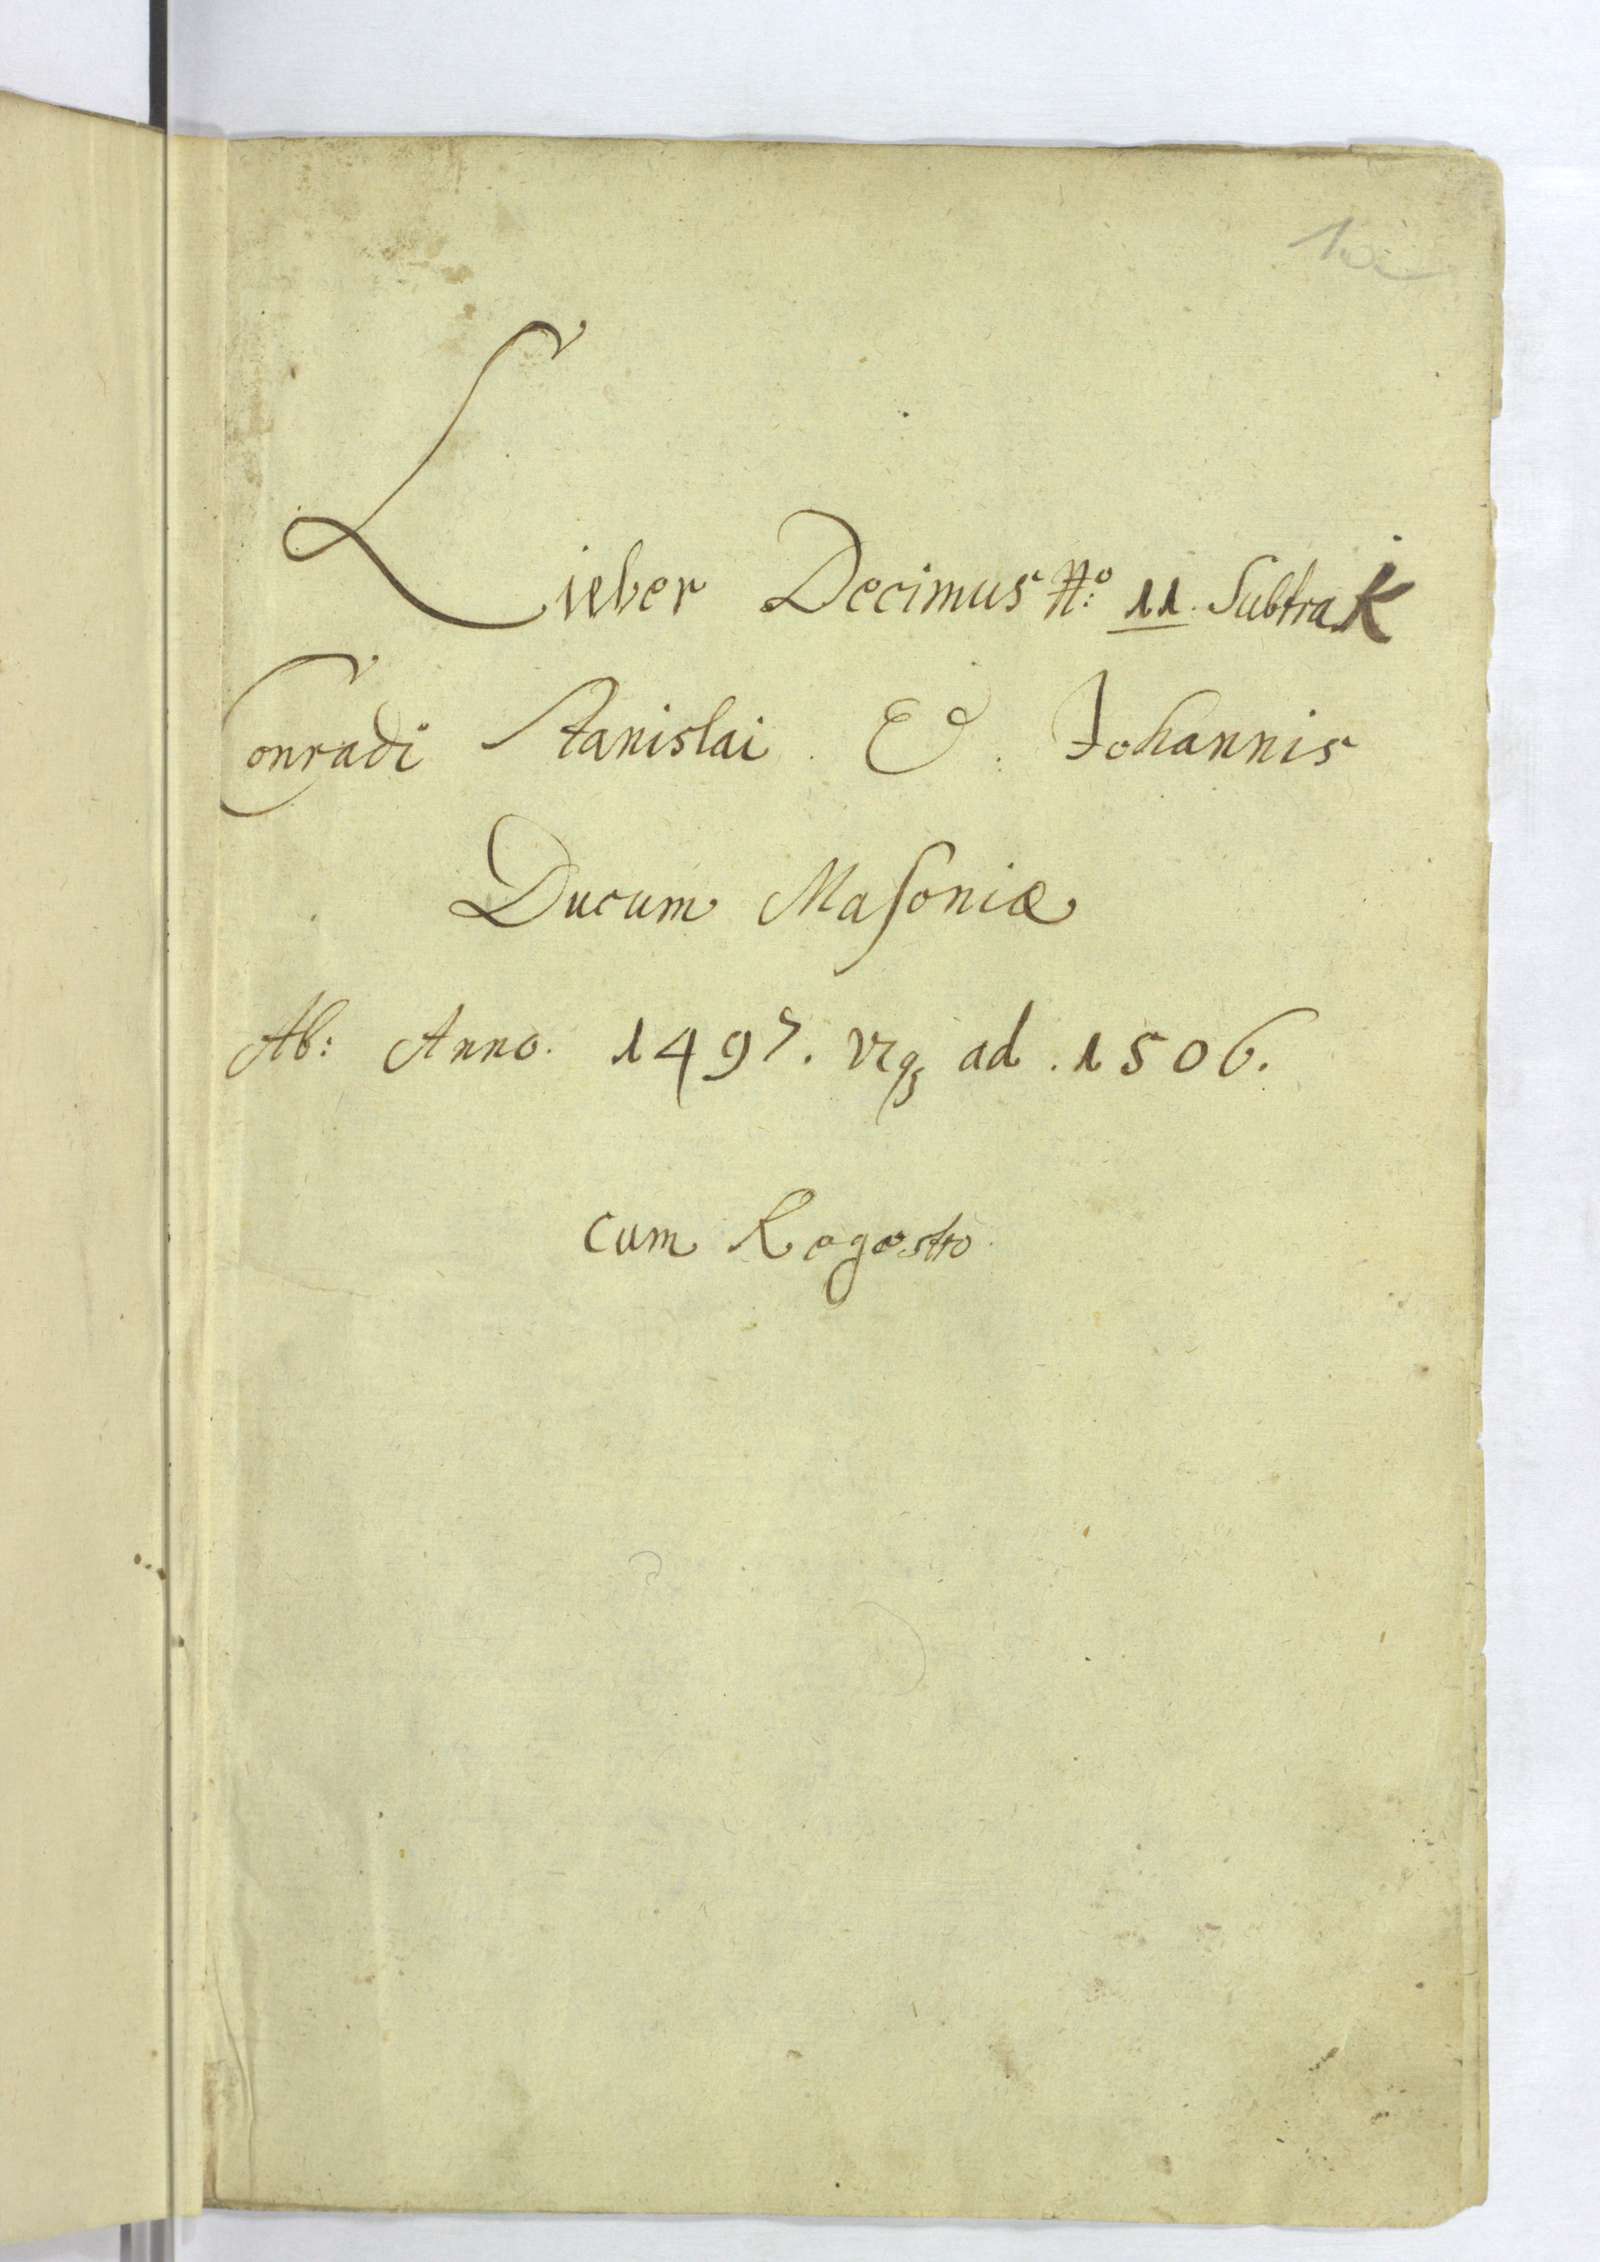 Lieber Decimus No: 11. Subtra K
Conradi Stanislai . & . Johannis
Ducum Masoniæ
Ab: Anno. 1497. Vsq3 ad . 1506.
cum Regestro